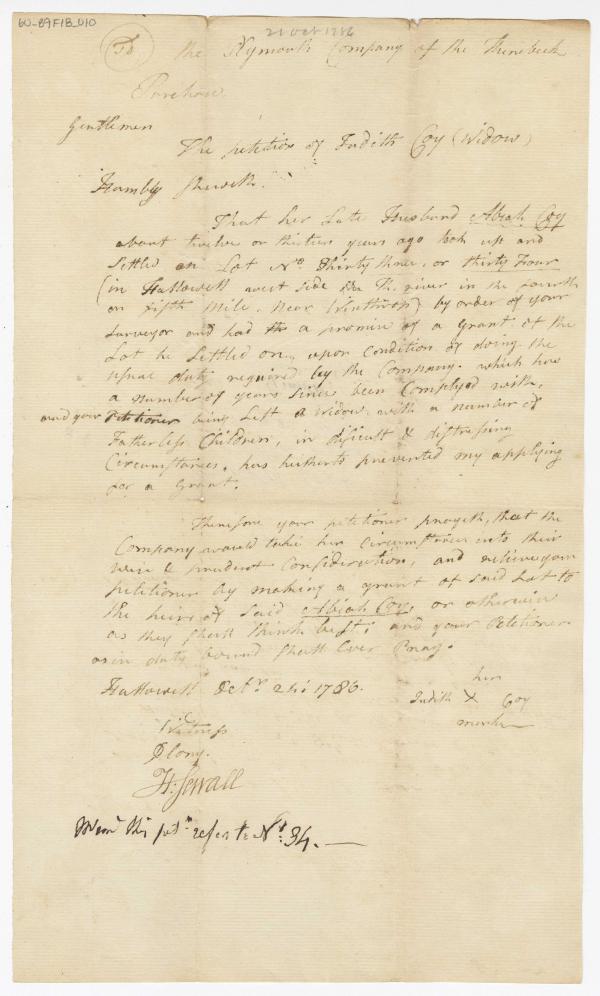 60-89F1B_010
21 Oct 1786
To the Plymouth Company of the Kennebeck
Purchase
Gentlemen
The petition of Judith Coy (Widow)
Humbly sheweth.
That her Late Husband Abiah Coy
about twelve or thirteen years ago took up and
Settled on Lot No. Thirty three, or thirty Four
(in Hallowell west side the river in the fourth
or fifth Mile, Near Winthrop) by order of your
Surveyor and had a promise of a Grant of the
Lot he Settled on, upon Condition of doing the
usual duty required by the Company. which has
a number of years since been Complyed with,
and your Petitioner being Left a Widow with a number of
Fatherless Children, in dificult & distressing
Circumstances. has hitherto prevented my applying
for a Grant.
Therefore your petitioner prayeth, that the
Company would take her Circumstances into their
wise & prudent Consideration, and relieve your
petitioner by making a grant of said Lot to
the heirs of said Abiah Coy, or otherwise
as they shall think best; and your Petitioner
as in duty bound shall Ever Pray.
Hallowell Octr. 21: 1786.
her
Judith X Coy
mark
Witness
D Cony.
H: Sewall
Memo. this petn. refers to No: 34.